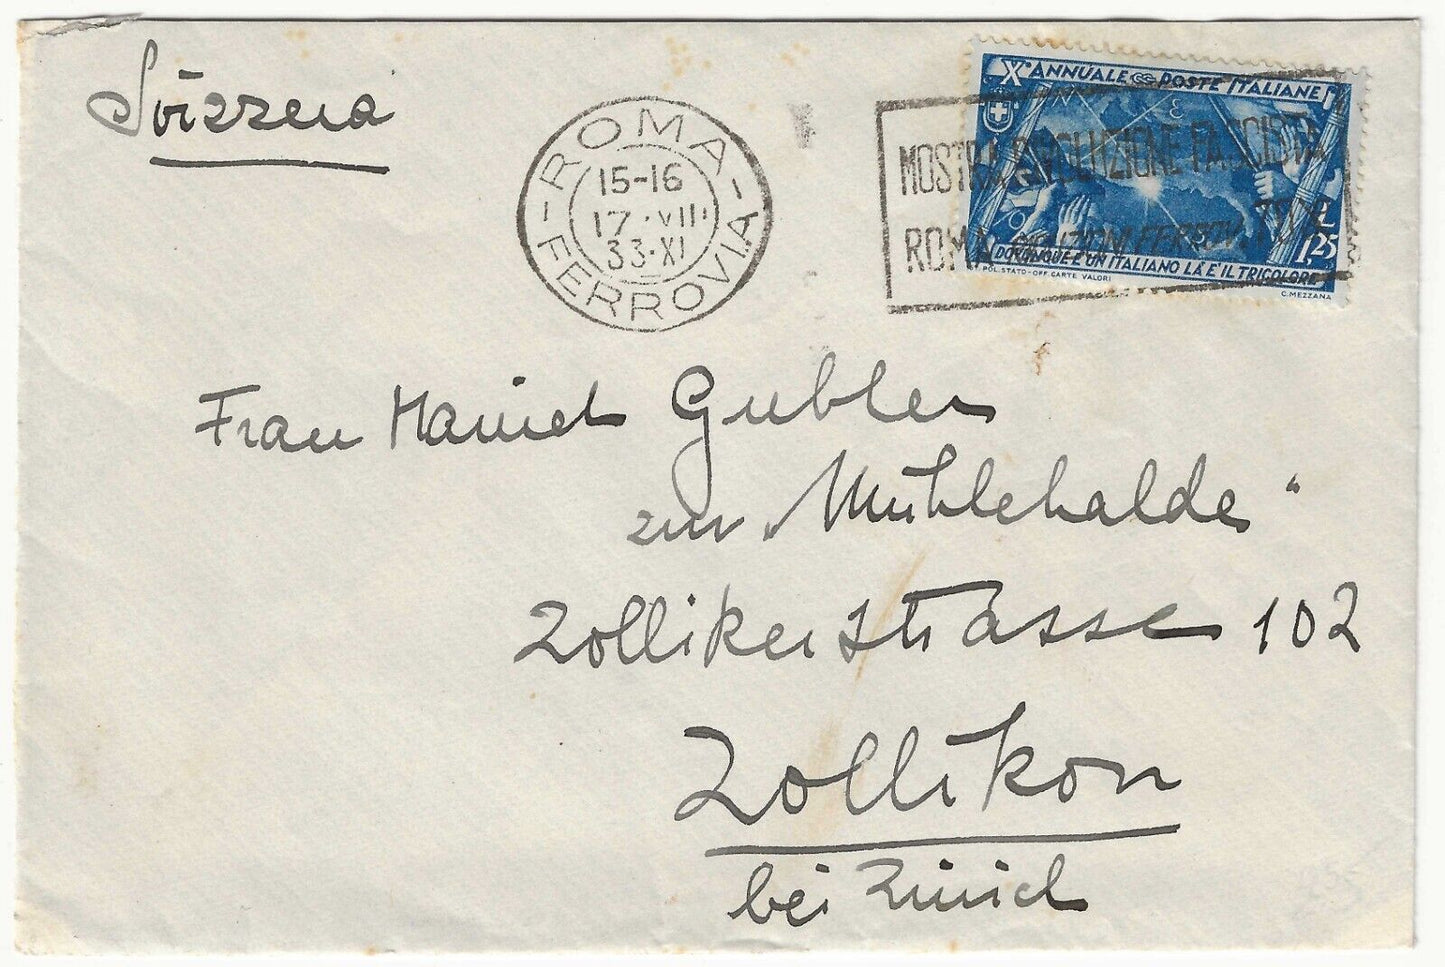 Svizzera
ROMA
FERROVIA
15-16
17·VII·
33·XI
MOSTRA RIVOLUZIONE FASCISTA
ROMA RIDUZIONI FERROV. 70%
X° ANNUALE POSTE ITALIANE
L
1,25
DOVUNQUE È UN ITALIANO LÀ È IL TRICOLORE
POL. STATO-OFF. CARTE VALORI
C. MEZZANA
Frau Gubler
zur „Mühlehalde“
Zollikerstrasse 102
Zollikon
bei Zürich